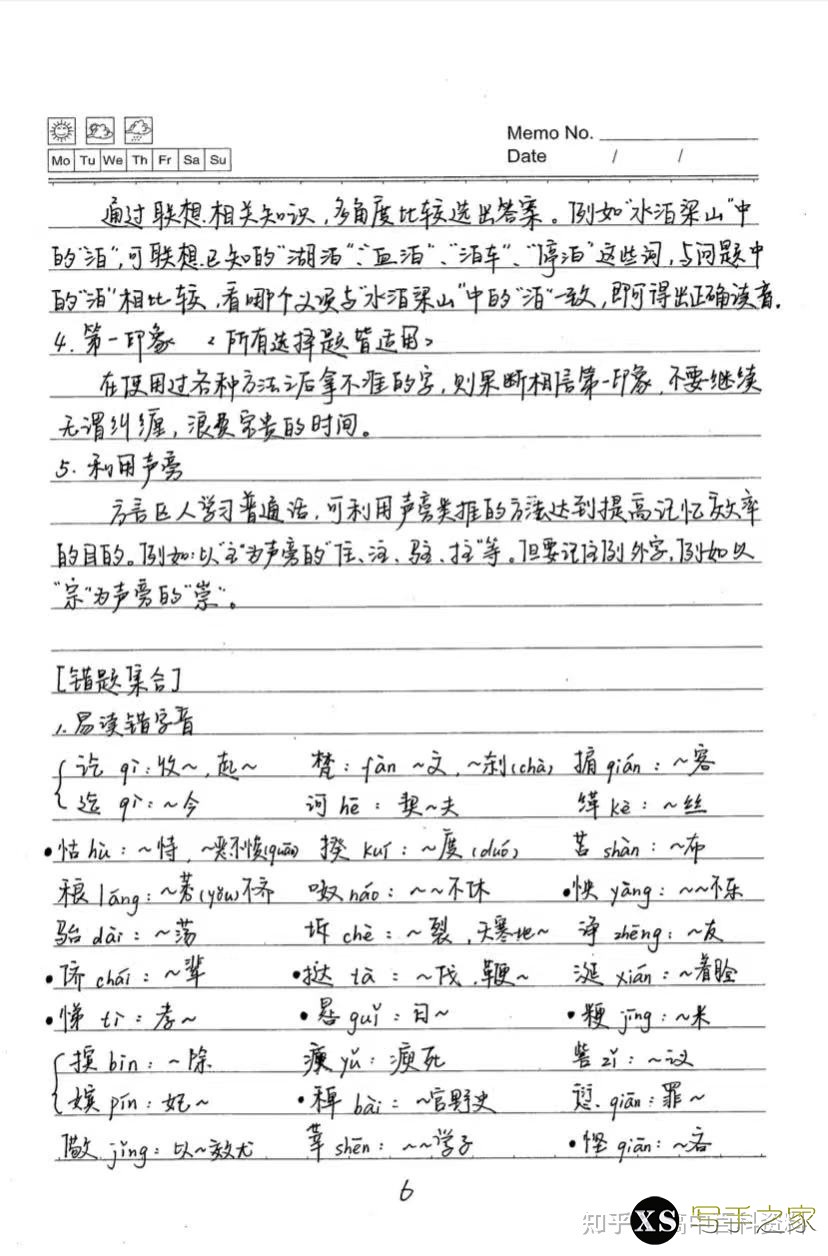 Memo No.
Mo Tu We Th Fr Sa Su
Date / /
通过联想相关知识,多角度比较选出答案。例如"水泊梁山"中
的"泊",可联想已知的"湖泊"、"血泊"、"泊车"、"停泊"这些词,与问题中
的"泊"相比较,看哪个义项与"水泊梁山"中的"泊"一致,即可得出正确读音.
4. 第一印象 <所有选择题皆适用>
在使用过各种方法之后拿不准的字,则果断相信第一印象,不要继续
无谓纠缠,浪费宝贵的时间。
5. 利用声旁
方言区人学习普通话,可利用声旁类推的方法达到提高记忆效率
的目的。例如:以"主"为声旁的"住、注、驻、拄"等。但要记住例外字,例如以
"宗"为声旁的"崇"。
[错题集合]
1.易读错字音
讫 qì:收~,起~ 梵:fàn ~文,~刹(chà) 掮 qián:~客
迄 qì:~今 诃 hē:契~夫 缂 kè:~丝
•怙 hù:~恃,~恶不悛(quān) 揆 kuí:~度(duó) 苫 shàn:~布
稂 láng:~莠(yǒu)不齐 呶 náo:~~不休 •怏 yàng:~~不乐
骀 dài:~荡 坼 chè:~裂,天寒地~ 诤 zhēng:~友
•侪 chái:~辈 •挞 tà:~伐,鞭~ 涎 xián:~着脸
•悌 tì:孝~ •晷 guǐ:日~ •粳 jīng:~米
摈 bìn:~除 瘐 yǔ:瘐死 訾 zǐ:~议
嫔 pín:妃~ •稗 bài:~官野史 愆 qiān:罪~
儆 jǐng:以~效尤 莘 shēn:~~学子 •悭 qiān:~吝
6
知乎
XS 写手之家